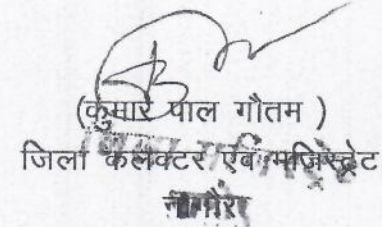 (कुमार पाल गौतम )
जिला कलक्टर एवं मजिस्ट्रेट
नागौर